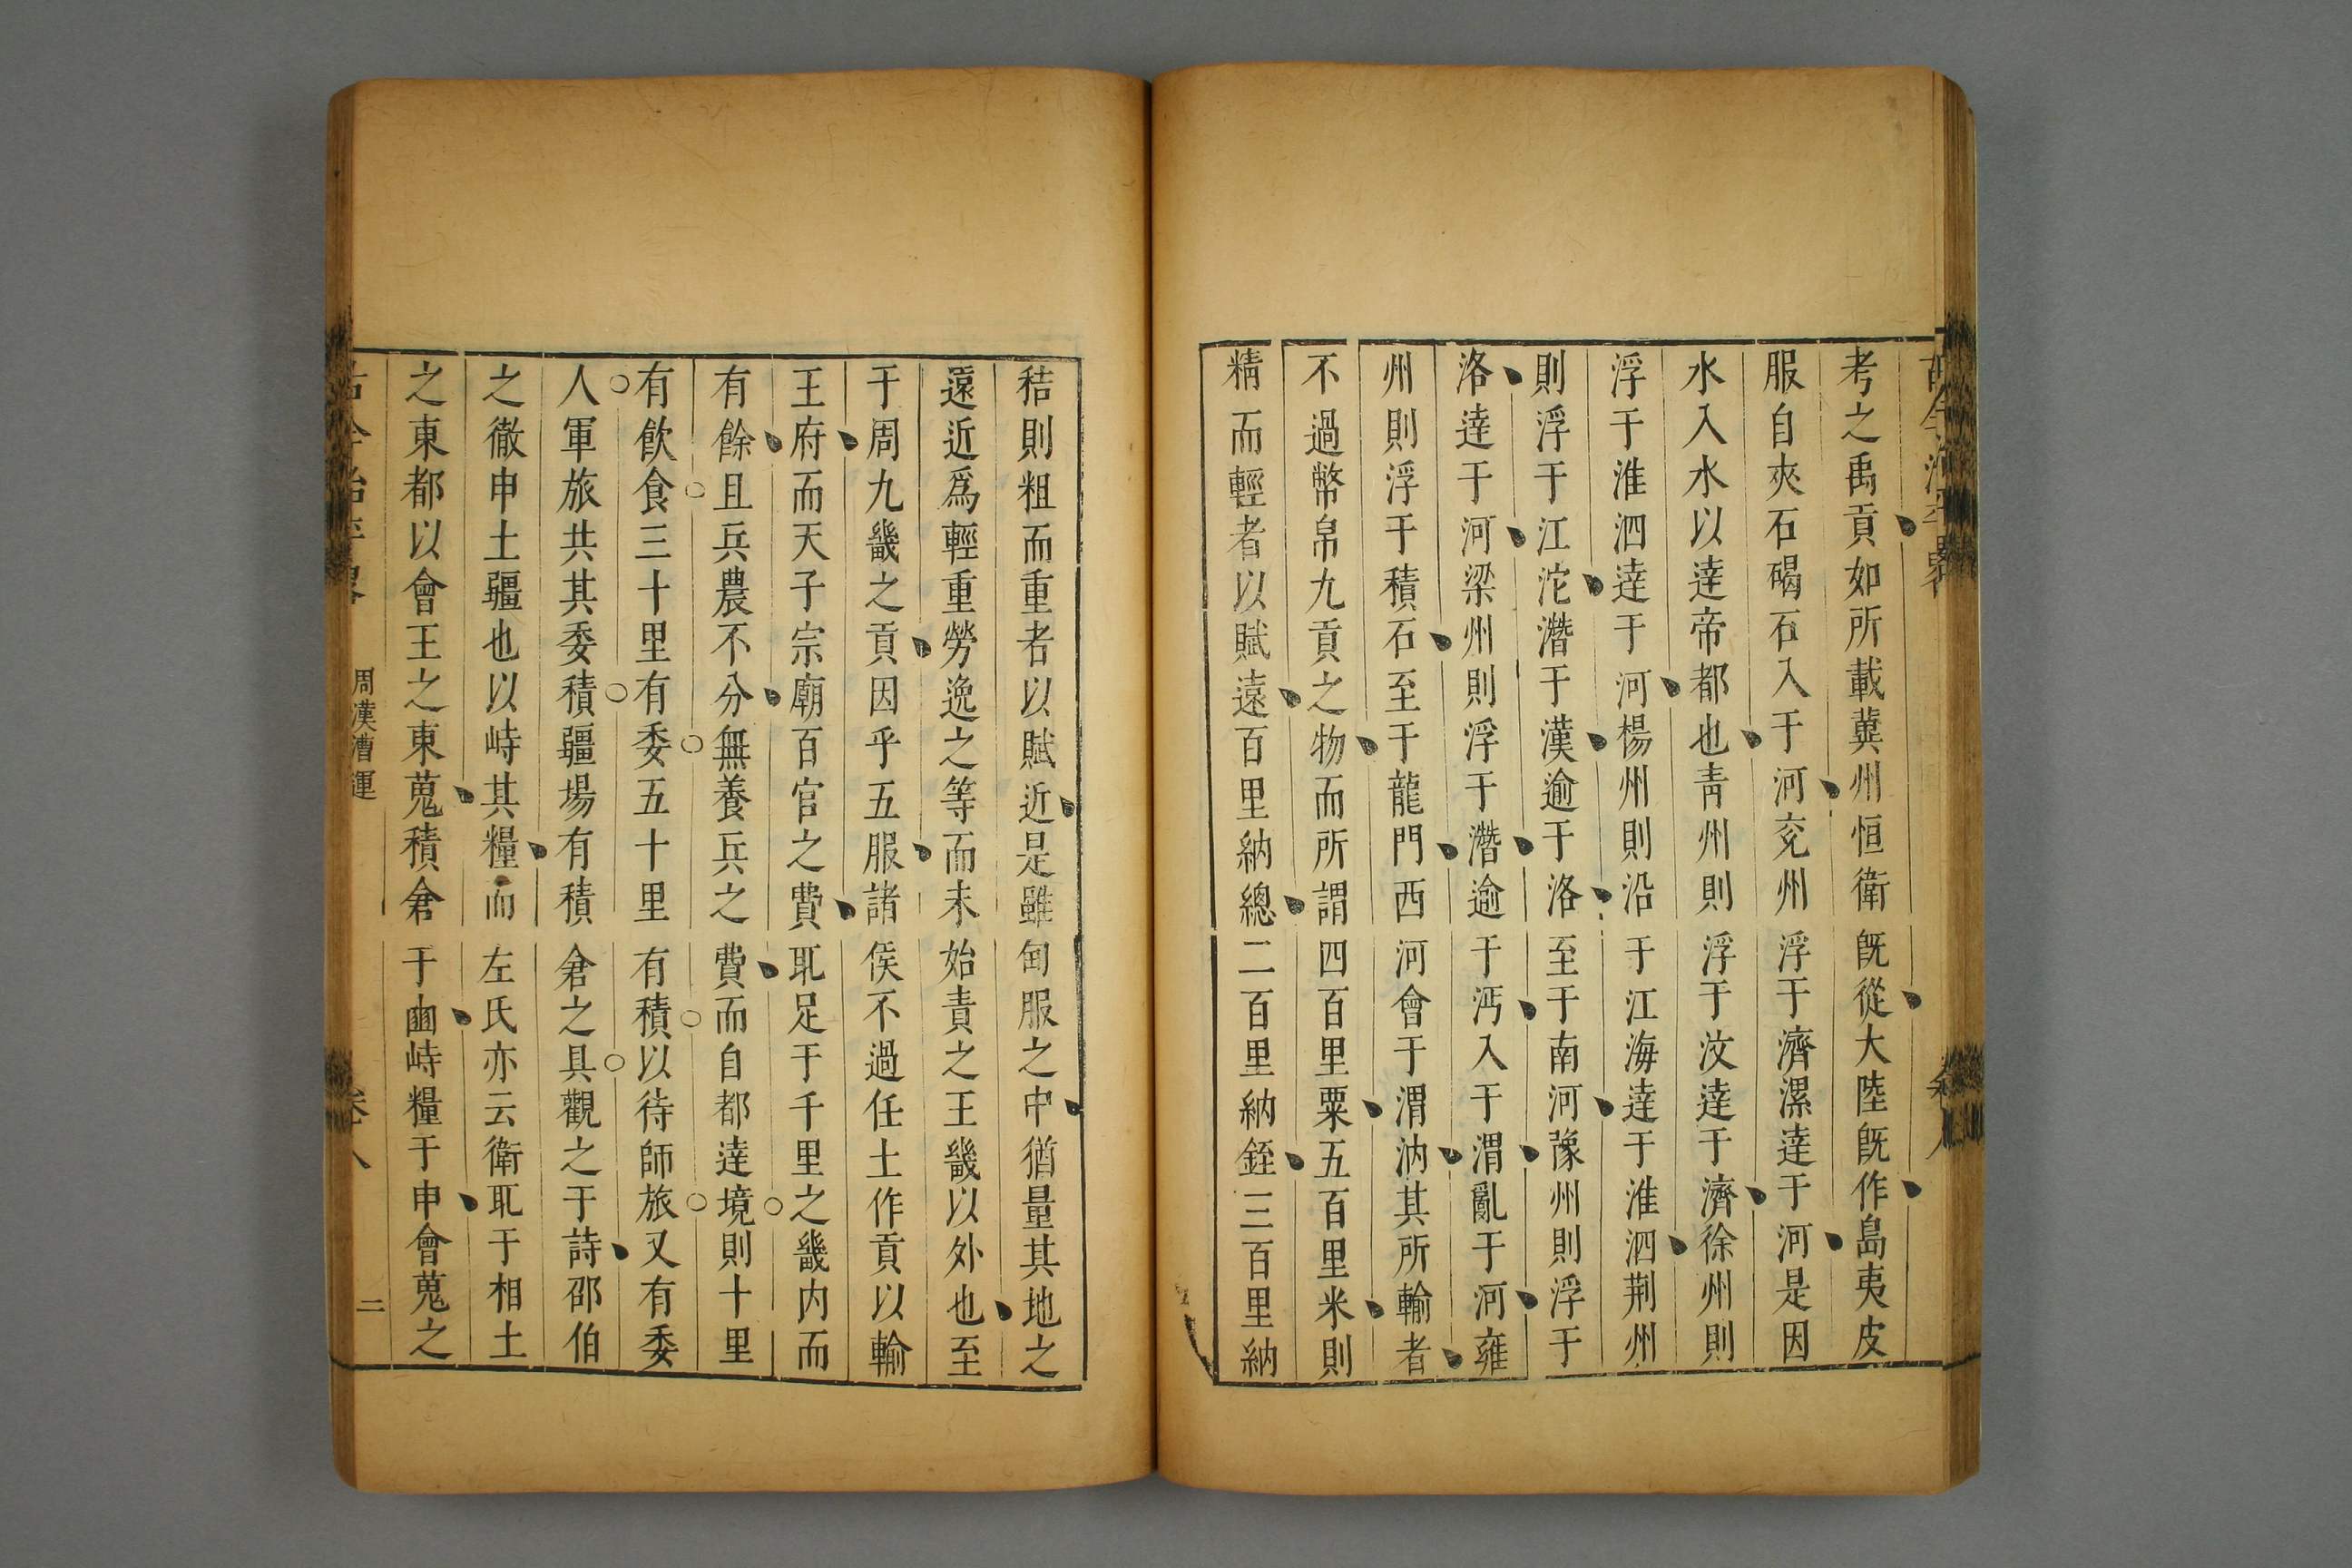 考之禹貢如所載冀州恒衛旣從大陸旣作島夷皮
服自夾石碣石入于河兗州浮于濟漯逹于河是因
水入水以逹帝都也靑州則浮于汶逹于濟徐州則
浮于淮泗逹于河楊州則沿于江海逹于淮泗荆州
則浮于江沱濳于漢逾于洛至于南河豫州則浮于
洛逹于河梁州則浮于濳逾于沔入于渭亂于河雍
州則浮于積石至于龍門西河會于渭汭其所輸者
不過幣帛九貢之物而所謂四百里粟五百里米則
精而輕者以賦遠百里納總二百里納銍三百里納
秸則粗而重者以賦近是雖甸服之中猶量其地之
遠近爲輕重勞逸之等而未始責之王畿以外也至
于周九畿之貢因乎五服諸侯不過任土作貢以輸
王府而天子宗廟百官之費耴足于千里之畿内而
有餘且兵農不分無養兵之費而自都逹境則十里
有飮食三十里有委五十里有積以待師旅又有委
人軍旅共其委積疆場有積倉之具觀之于詩邵伯
之徹申土疆也以峙其糧而左氏亦云衛耴于相土
之東都以會王之東蒐積倉于豳峙糧于申會蒐之
周漢漕運
卷八
二